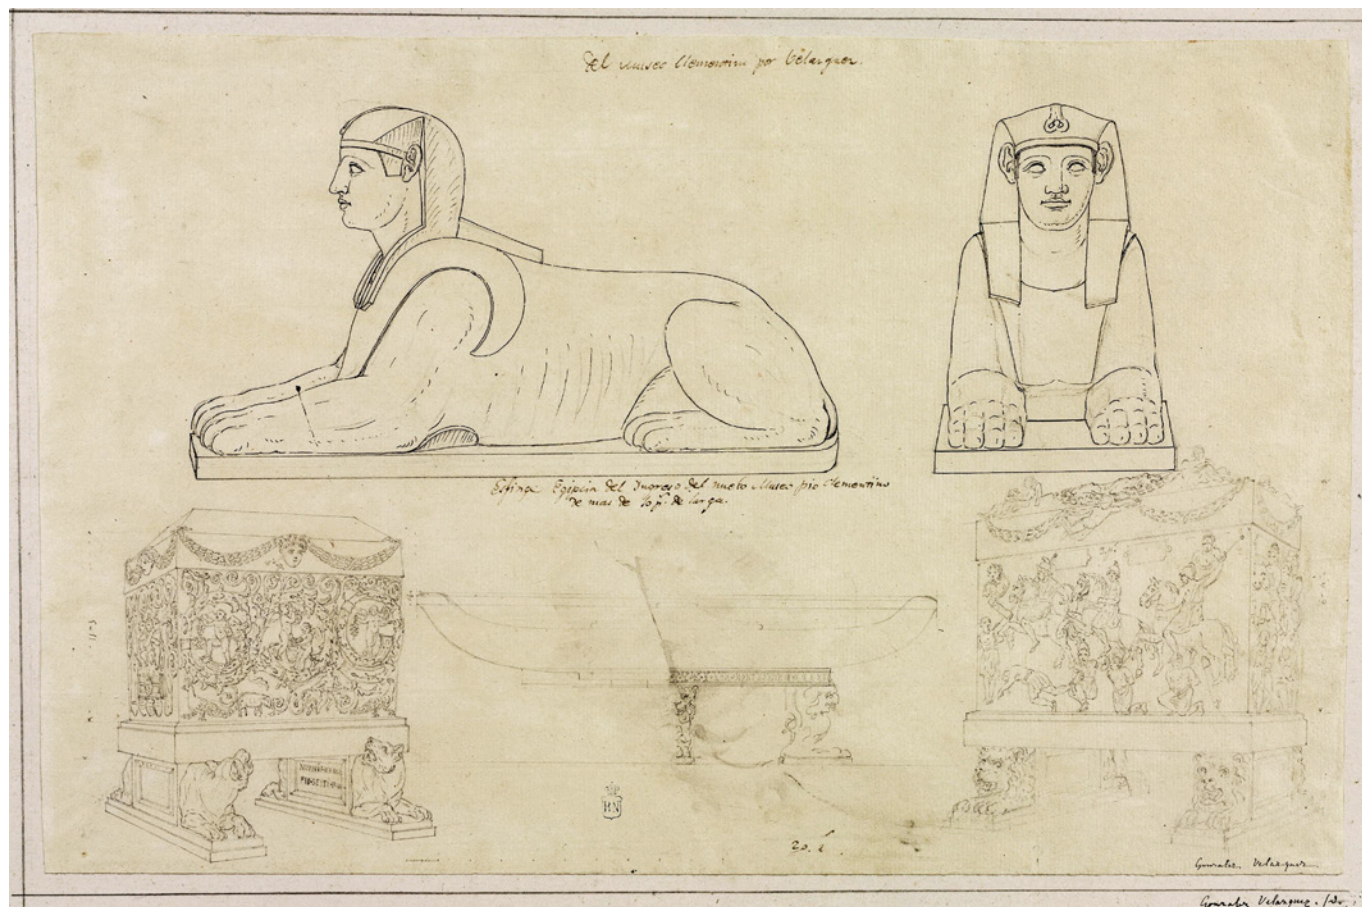 Del Museo Clementino por Velazquez.
Esfinge Egipcia del Ingreso del nuebo Museo pio Clementino
de mas de 10 p.s de larga.
HN
20. L
Gonzalez Velazquez
Gonzalez Velazquez.